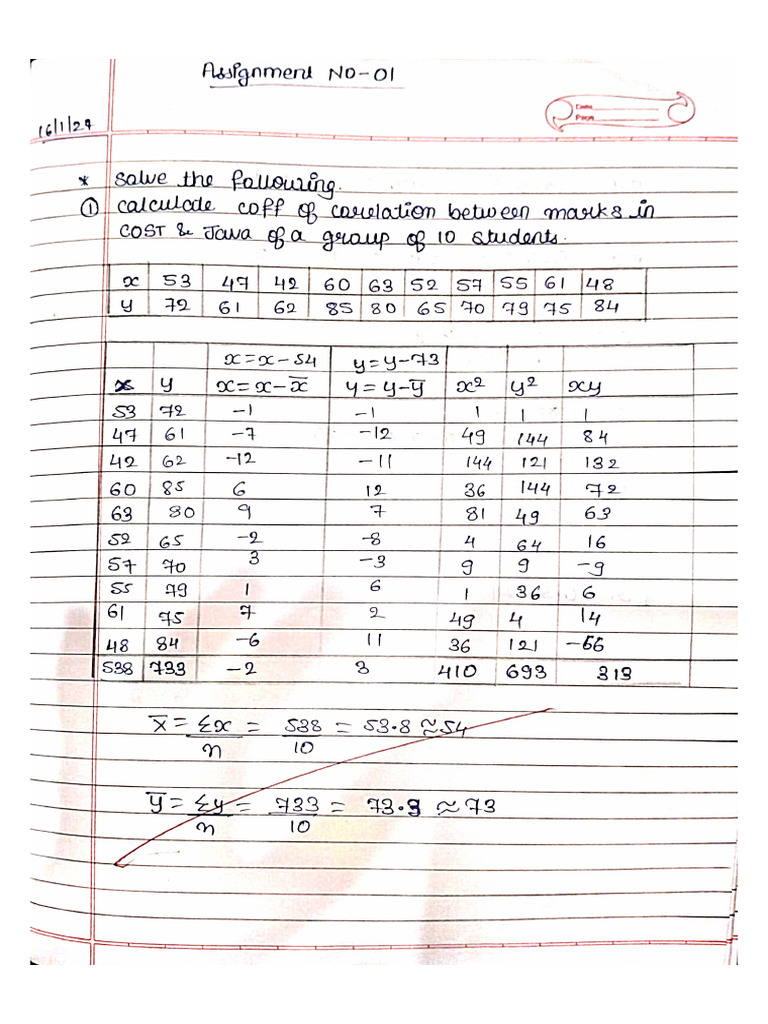 Assignment NO-01
16/1/24
* Solve the following.
① calculate coff of corelation between marks in
COST & Java of a group of 10 students.
x 53 47 42 60 63 52 57 55 61 48
y 72 61 62 85 80 65 70 79 75 84
x=x-54 y=y-73
x y x=x-x̅ y=y-y̅ x² y² xy
53 72 -1 -1 1 1 1
47 61 -7 -12 49 144 84
42 62 -12 -11 144 121 132
60 85 6 12 36 144 72
63 80 9 7 81 49 63
52 65 -2 -8 4 64 16
57 70 3 -3 9 9 -9
55 79 1 6 1 36 6
61 75 7 2 49 4 14
48 84 -6 11 36 121 -66
538 733 -2 3 410 693 313
x̅ = Σx/n = 538/10 = 53.8 ≈ 54
y̅ = Σy/n = 733/10 = 73.3 ≈ 73